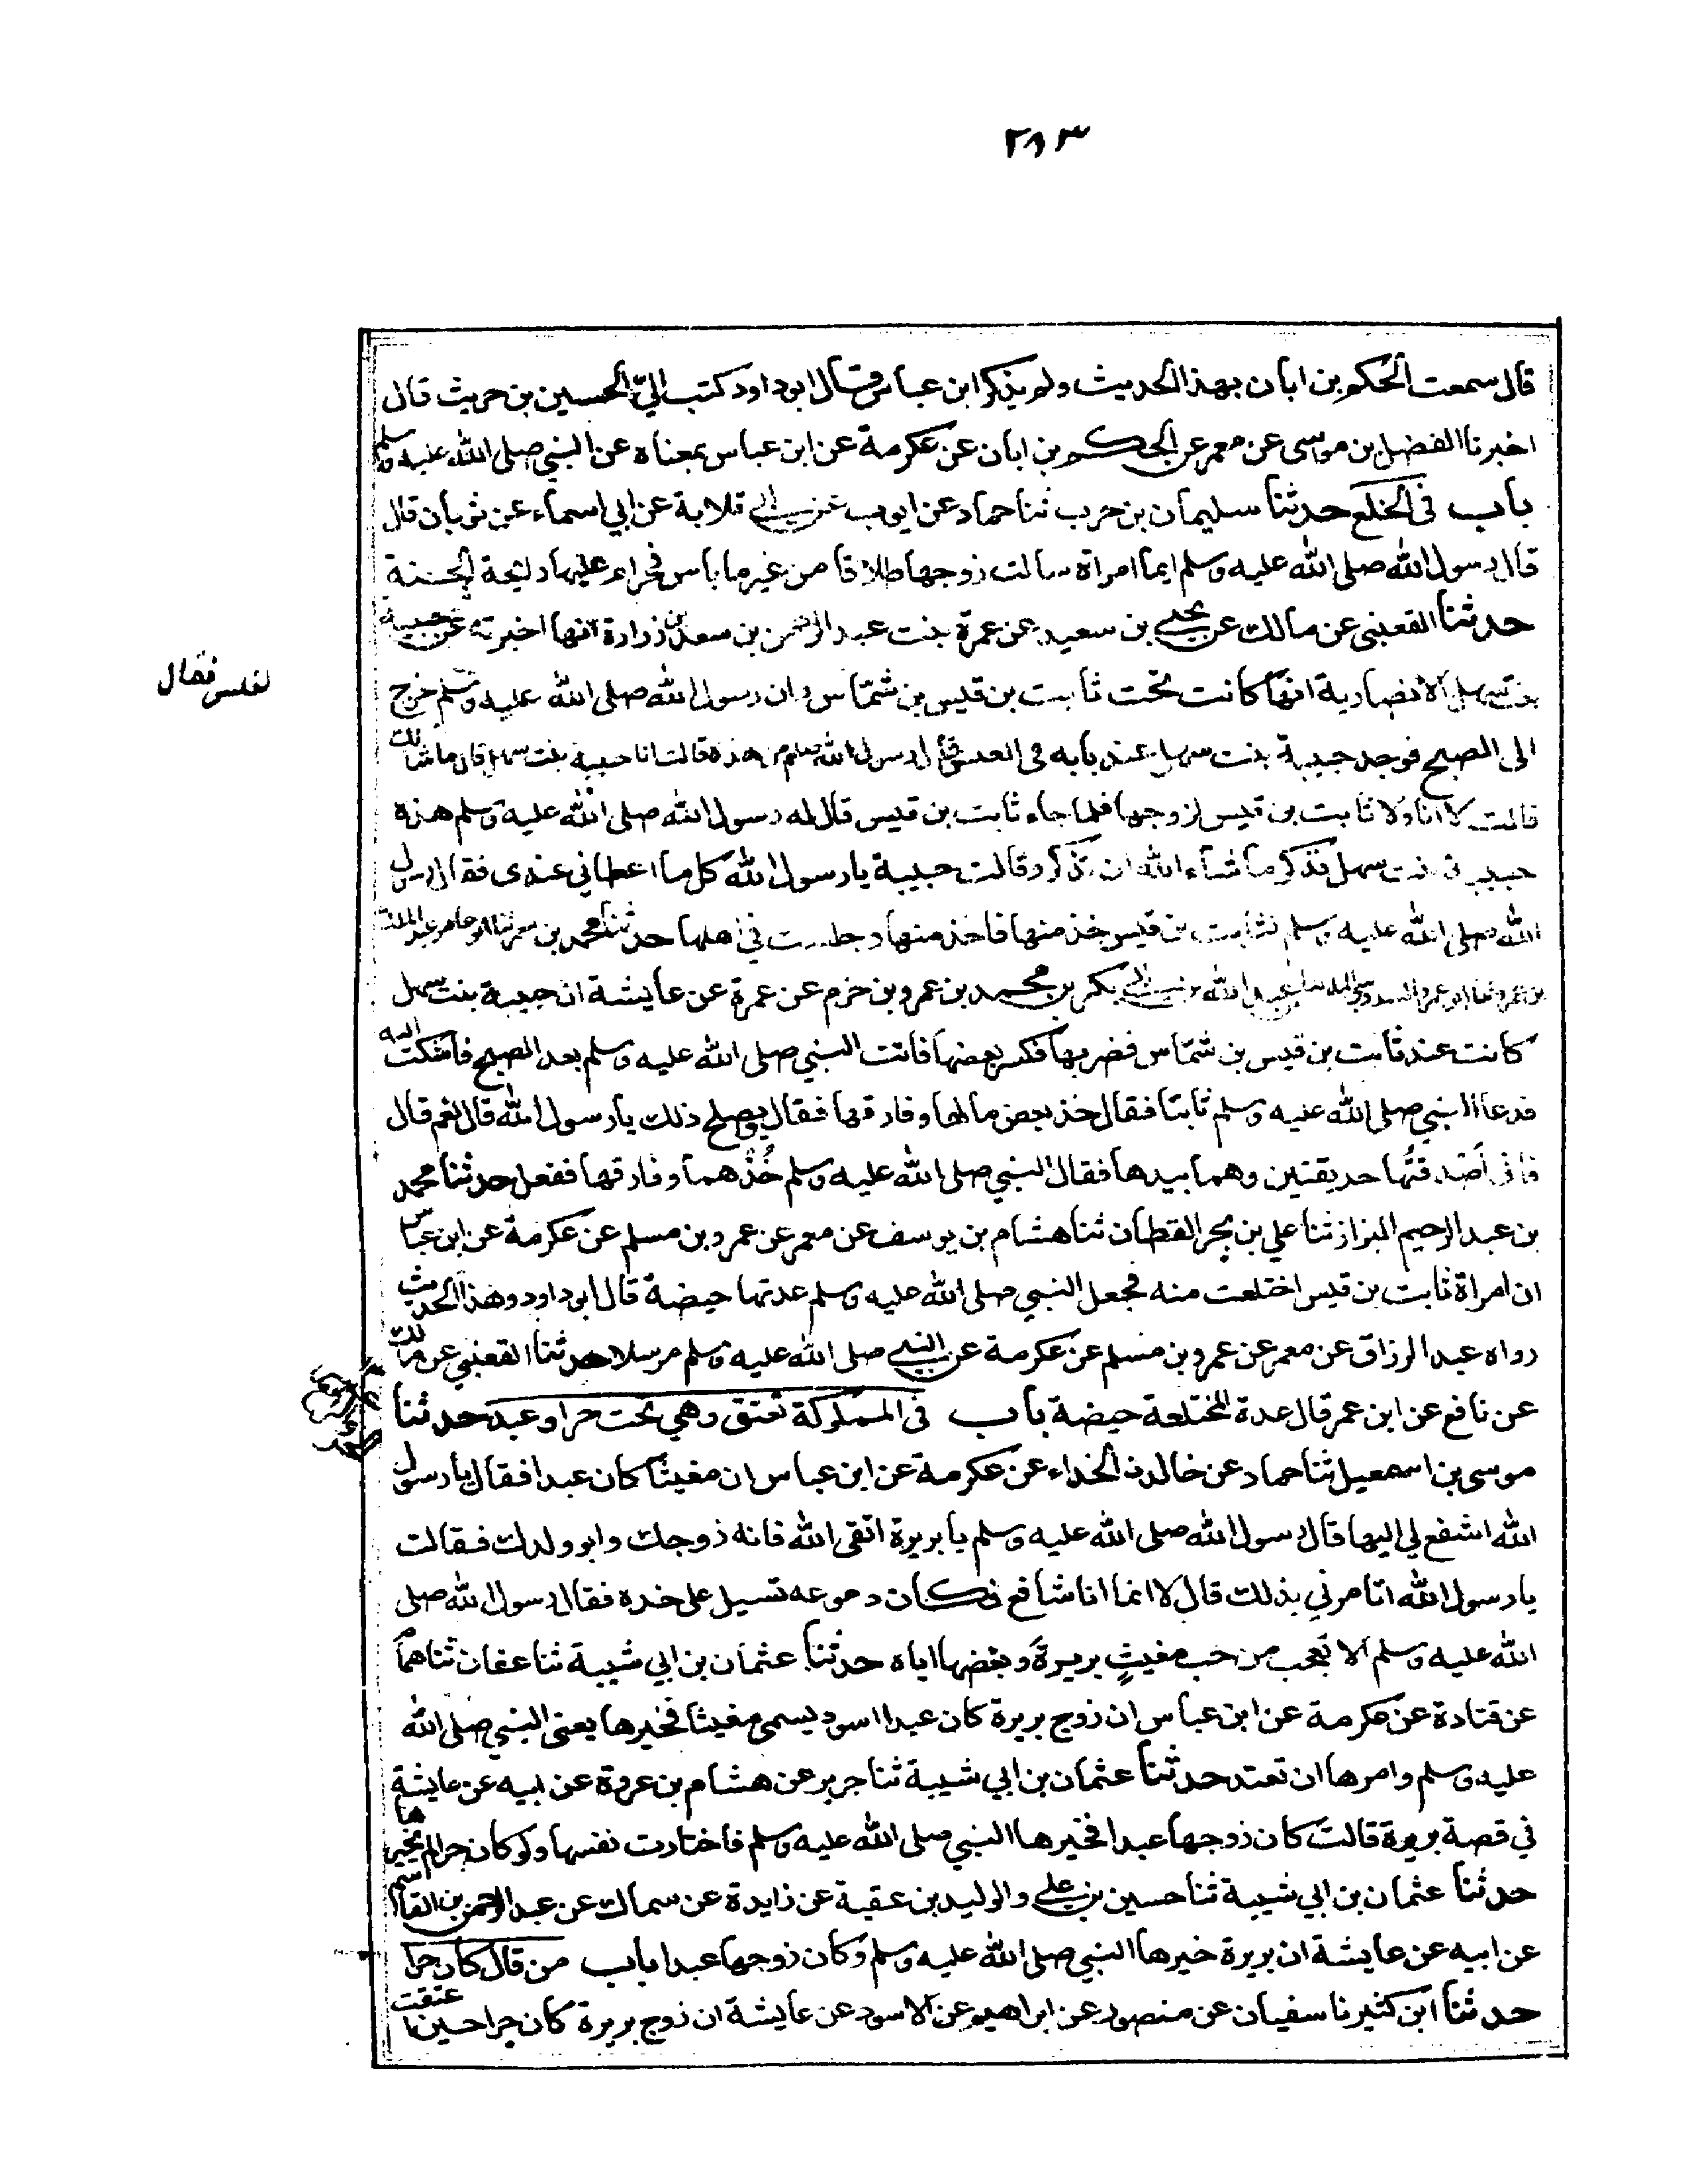 ٢٨٣
قال سمعت الحكم بن ابان بهذا الحديث ولم يذكر ابن عباس وقال ابو داود كتب الي الحسين بن حريث قال
اخبرنا الفضل بن موسى عن معمر عن الحكم بن ابان عن عكرمة عن ابن عباس بمعناه عن النبي صلى الله عليه وسلم
باب في الخلع حدثنا سليمان بن حرب ثنا حماد عن ايوب عن ابي قلابة عن ابي اسماء عن ثوبان قال
قال رسول الله صلى الله عليه وسلم ايما امراة سالت زوجها طلاقا من غير ما باس فحرام عليها رائحة الجنة
حدثنا القعنبي عن مالك عن يحيى بن سعيد عن عمرة بنت عبد الرحمن بن سعد بن زرارة انها اخبرته عن حبيبة
بنت سهل الانصارية انها كانت تحت ثابت بن قيس بن شماس وان رسول الله صلى الله عليه وسلم خرج
الى الصبح فوجد حبيبة بنت سهل عند بابه في الغلس فقال رسول الله صلعم من هذه قالت انا حبيبة بنت سهل قال ما شانك
لغلس فقال
قالت لا انا ولا ثابت بن قيس لزوجها فلما جاء ثابت بن قيس قال له رسول الله صلى الله عليه وسلم هذه
حبيبة بنت سهل تذكر ما شاء الله ان تذكر وقالت حبيبة يا رسول الله كل ما اعطاني عندى فقال رسول
الله صلى الله عليه وسلم لثابت بن قيس خذ منها فاخذ منها وجلست في اهلها حدثنا محمد بن معمر ثنا ابو عامر عبد الملك
بن عمرو ثنا ابو عمرو السدوسي المديني عن عبد الله بن ابي بكر بن محمد بن عمرو بن حزم عن عمرة عن عايشة ان حبيبة بنت سهل
كانت عند ثابت بن قيس بن شماس فضربها فكسر بعضها فاتت النبي صلى الله عليه وسلم بعد الصبح فاشتكت اليه
فدعا النبي صلى الله عليه وسلم ثابتا فقال خذ بعض مالها وفارقها فقال ويصلح ذلك يا رسول الله قال نعم قال
فاني اصدقتها حديقتين وهما بيدها فقال النبي صلى الله عليه وسلم خُذْهما وفارقها ففعل حدثنا محمد
بن عبد الرحيم البزاز ثنا علي بن بحر القطان ثنا هشام بن يوسف عن معمر عن عمرو بن مسلم عن عكرمة عن ابن عباس
ان امراة ثابت بن قيس اختلعت منه فجعل النبي صلى الله عليه وسلم عدتها حيضة قال ابو داود وهذا الحديث
رواه عبد الرزاق عن معمر عن عمرو بن مسلم عن عكرمة عن النبي صلى الله عليه وسلم مرسلا حدثنا القعنبي عن مالك
عن نافع عن ابن عمر قال عدة المختلعة حيضة باب في المملوكة تعتق وهي تحت حر او عبد حدثنا
موسى بن اسمعيل ثنا حماد عن خالد الحذاء عن عكرمة عن ابن عباس ان مغيثا كان عبدا فقال يا رسول
الله اشفع لي اليها قال رسول الله صلى الله عليه وسلم يا بريرة اتقى الله فانه زوجك وابو ولدك فقالت
يا رسول الله اتامرني بذلك قال لا انما انا شافع فكان دموعه تسيل على خده فقال رسول الله صلى
الله عليه وسلم الا تعجب من حب مغيثٍ بريرةَ وبغضها اياه حدثنا عثمان بن ابي شيبة ثنا عفان ثنا همام
عن قتادة عن عكرمة عن ابن عباس ان زوج بريرة كان عبدا اسود يسمى مغيثا فخيرها يعنى النبي صلى الله
عليه وسلم وامرها ان تعتد حدثنا عثمان بن ابي شيبة ثنا جرير عن هشام بن عروة عن ابيه عن عايشة
في قصة بريرة قالت كان زوجها عبدا فخيرها النبي صلى الله عليه وسلم فاختارت نفسها ولو كان حرا لم يخيرها
حدثنا عثمان بن ابي شيبة ثنا حسين بن علي والوليد بن عقبة عن زايدة عن سماك عن عبد الرحمن بن القاسم
عن ابيه عن عايشة ان بريرة خيرها النبي صلى الله عليه وسلم وكان زوجها عبدا باب من قال كان حرا
حدثنا ابن كثير نا سفيان عن منصور عن ابراهيم عن الاسود عن عايشة ان زوج بريرة كان حرا حين اعتقت